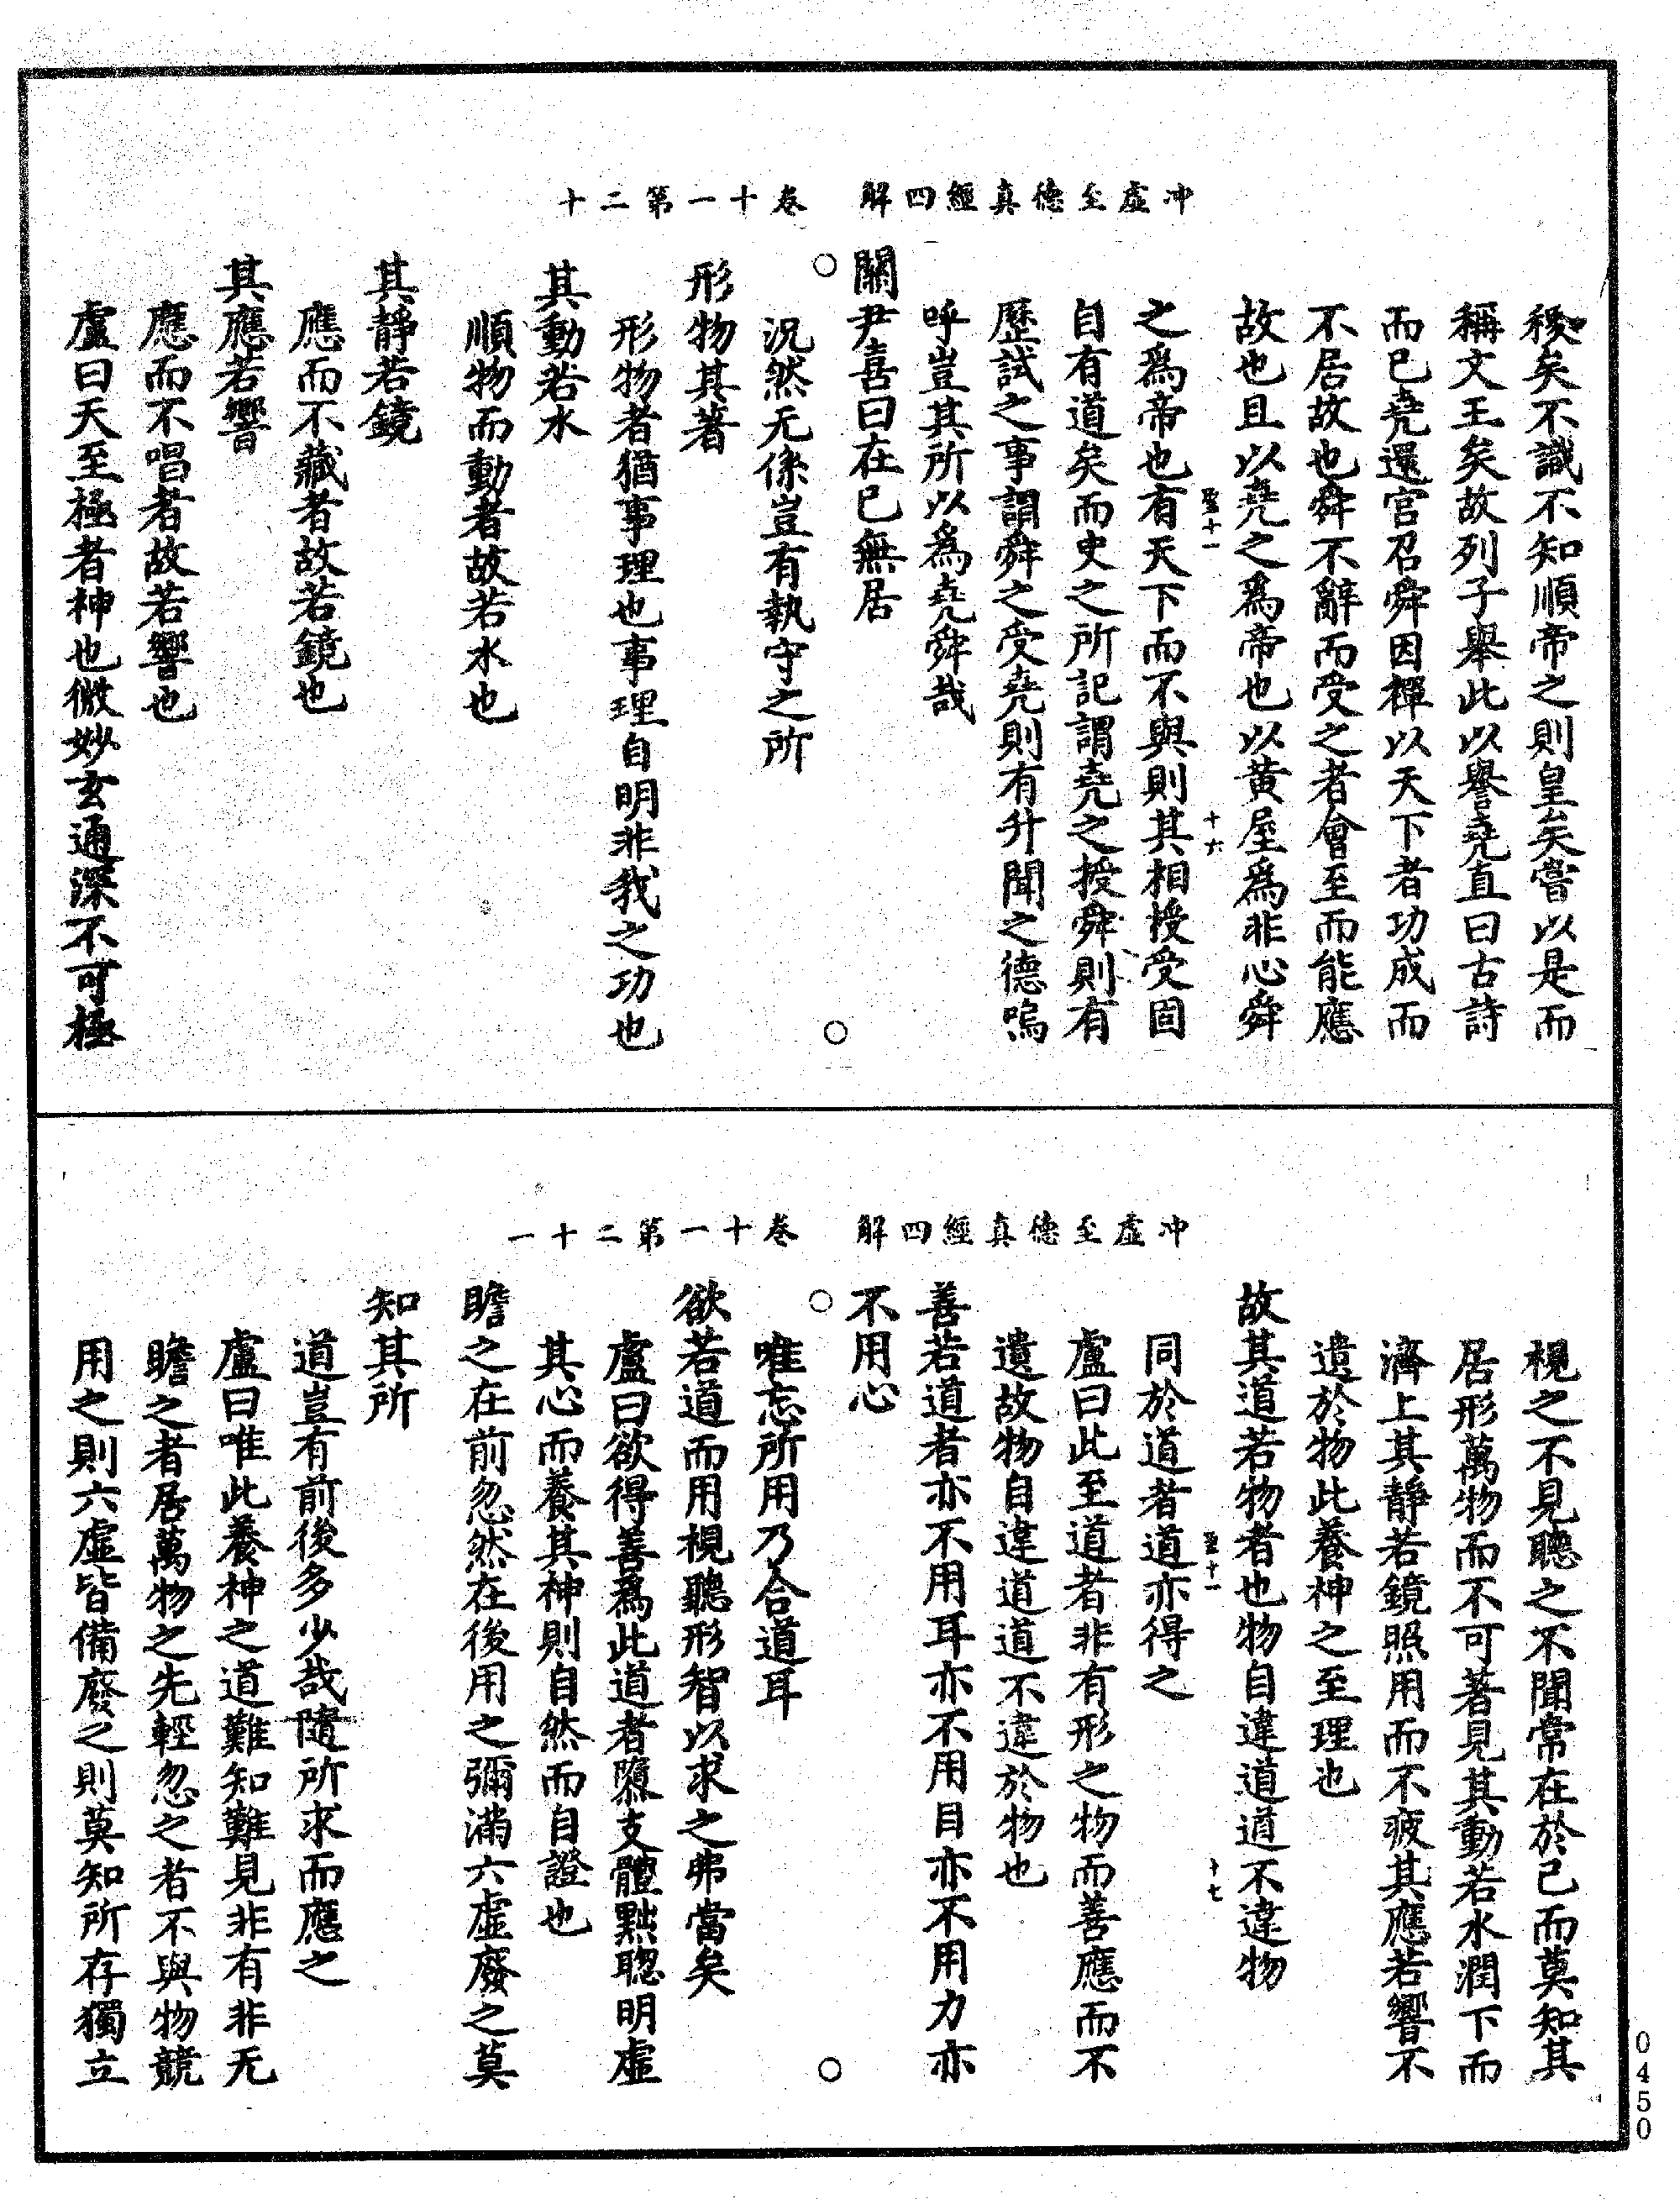 冲虛至德真經四解　卷十一第二十
稷矣不識不知順帝之則皇矣嘗以是而
稱文王矣故列子舉此以譽堯直曰古詩
而已堯還宮召舜因禪以天下者功成而
不居故也舜不辭而受之者會至而能應
故也且以堯之爲帝也以黃屋爲非心舜
聖十一　十六
之爲帝也有天下而不與則其相授受固
自有道矣而史之所記謂堯之授舜則有
歷試之事謂舜之受堯則有升聞之德嗚
呼豈其所以爲堯舜哉
關尹喜曰在已無居
○　○
況然无係豈有執守之所
形物其著
形物者猶事理也事理自明非我之功也
其動若水
順物而動者故若水也
其靜若鏡
應而不藏者故若鏡也
其應若響
應而不唱者故若響也
盧曰天至極者神也微妙玄通深不可極
冲虛至德真經四解　卷十一第二十一
視之不見聽之不聞常在於己而莫知其
居形萬物而不可著見其動若水潤下而
濟上其靜若鏡照用而不疲其應若響不
遺於物此養神之至理也
故其道若物者也物自違道道不違物
聖十一　十七
同於道者道亦得之
盧曰此至道者非有形之物而善應而不
遺故物自違道道不違於物也
善若道者亦不用耳亦不用目亦不用力亦
不用心
○　○
唯忘所用乃合道耳
欲若道而用視聽形智以求之弗當矣
盧曰欲得善爲此道者隳支體黜聰明虛
其心而養其神則自然而自證也
瞻之在前忽然在後用之彌滿六虛廢之莫
知其所
道豈有前後多少哉隨所求而應之
盧曰唯此養神之道難知難見非有非无
瞻之者居萬物之先輕忽之者不與物競
用之則六虛皆備廢之則莫知所存獨立
0450